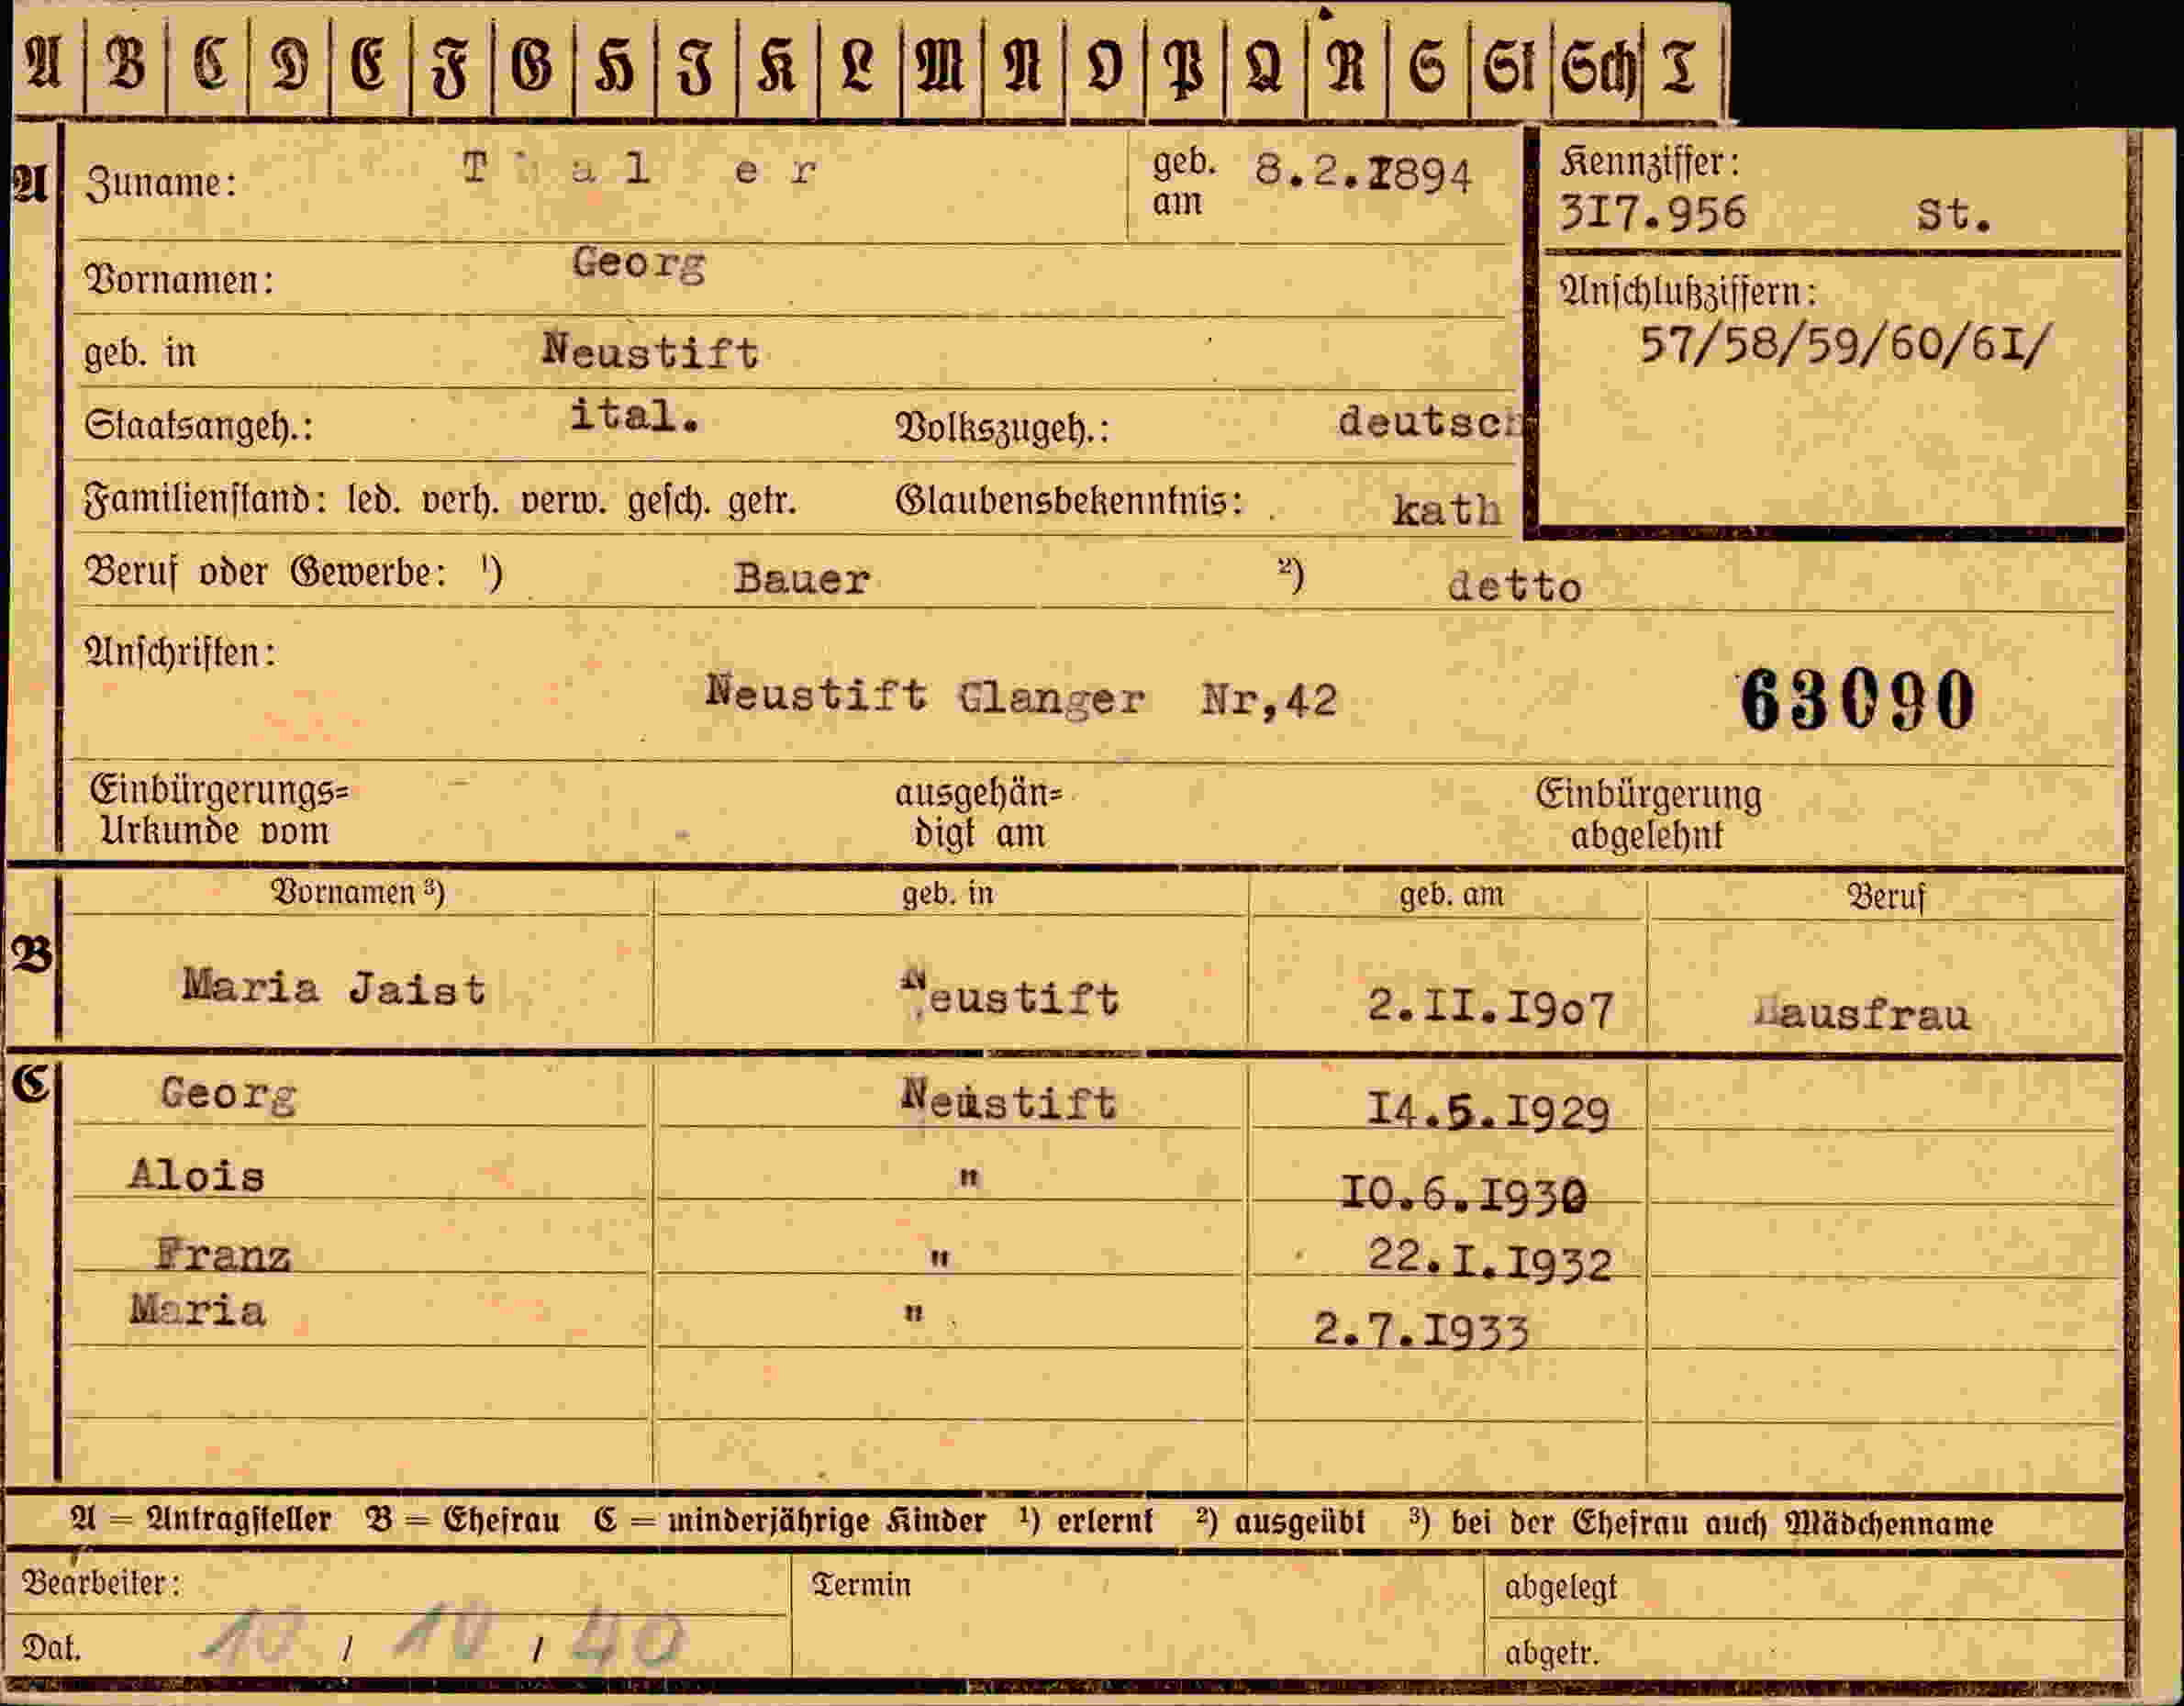 A B C D E F G H I K L M N O P Q R S St Sch T
A Zuname: T h a l e r geb. am 8.2.I894 Kennziffer:
317.956 St.
Vornamen: Georg
Anschlußziffern:
57/58/59/60/6I/
geb. in Neustift
Staatsangeh.: ital. Volkszugeh.: deutsch
Familienstand: led. verh. verw. gesch. getr. Glaubensbekenntnis: kath
Beruf oder Gewerbe: ¹) Bauer ²) detto
Anschriften:
Neustift Glanger Nr,42 63090
Einbürgerungs= ausgehän= Einbürgerung
Urkunde vom digt am abgelehnt
Vornamen ³) geb. in geb. am Beruf
B Maria Jaist Neustift 2.II.I9o7 Hausfrau
C Georg Neustift I4.5.I929
Alois " I0.6.I930
Franz " 22.I.I932
Maria " 2.7.I933
A = Antragsteller B = Ehefrau C = minderjährige Kinder ¹) erlernt ²) ausgeübt ³) bei der Ehefrau auch Mädchenname
Bearbeiter: Termin abgelegt
Dat. 10 / 10 / 40 abgetr.